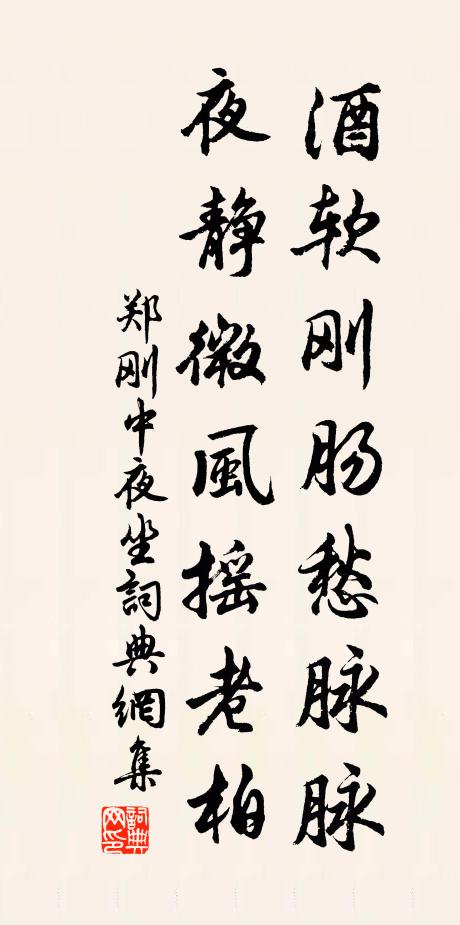 酒软刚肠愁脉脉
夜静微風摇老柏
郑刚中夜坐詞典網集
詞典網印